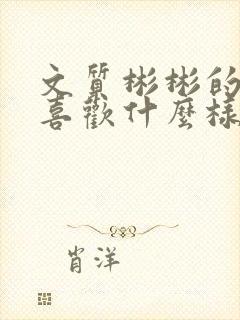 文質彬彬的
喜歡什麼樣
肖洋